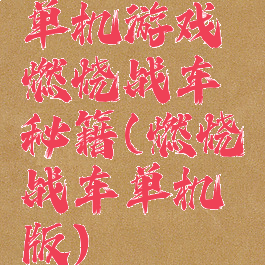 单机游戏
燃烧战车
秘籍(燃烧
战车单机
版)